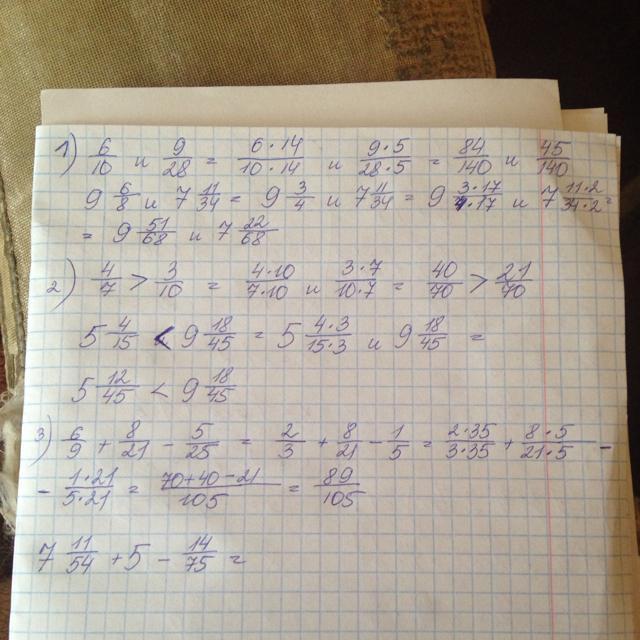 1) 6/10 и 9/28 = 6·14/10·14 и 9·5/28·5 = 84/140 и 45/140
9 6/8 и 7 11/34 = 9 3/4 и 7 11/34 = 9 3·17/4·17 и 7 11·2/34·2 =
= 9 51/68 и 7 22/68
2) 4/7 > 3/10 = 4·10/7·10 и 3·7/10·7 = 40/70 > 21/70
5 4/15 < 9 18/45 = 5 4·3/15·3 и 9 18/45 =
5 12/45 < 9 18/45
3) 6/9 + 8/21 - 5/25 = 2/3 + 8/21 - 1/5 = 2·35/3·35 + 8·5/21·5 -
- 1·21/5·21 = 70+40-21/105 = 89/105
7 11/54 + 5 - 14/75 =